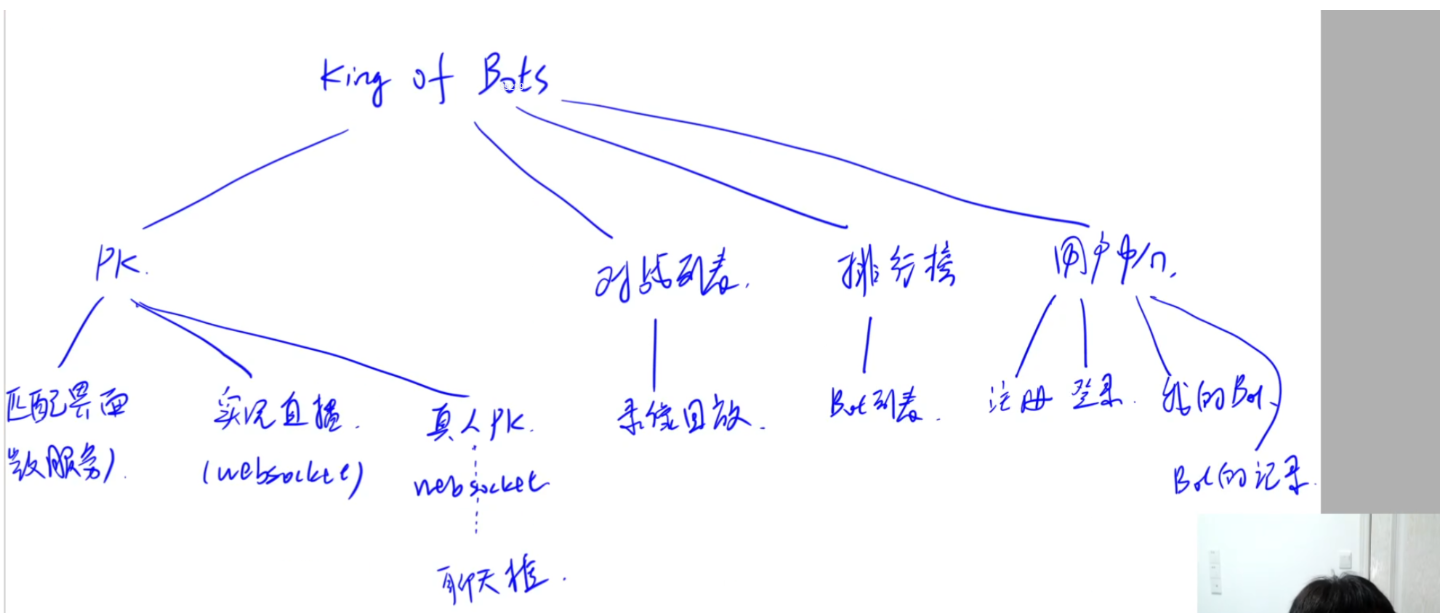 King of Bots
PK.
对战列表.
排行榜
用户中心.
匹配界面
微服务).
实况直播.
(websocket)
真人PK.
websocket
聊天框.
录像回放.
Bot列表.
注册
登录.
我的Bot.
Bot的记录.